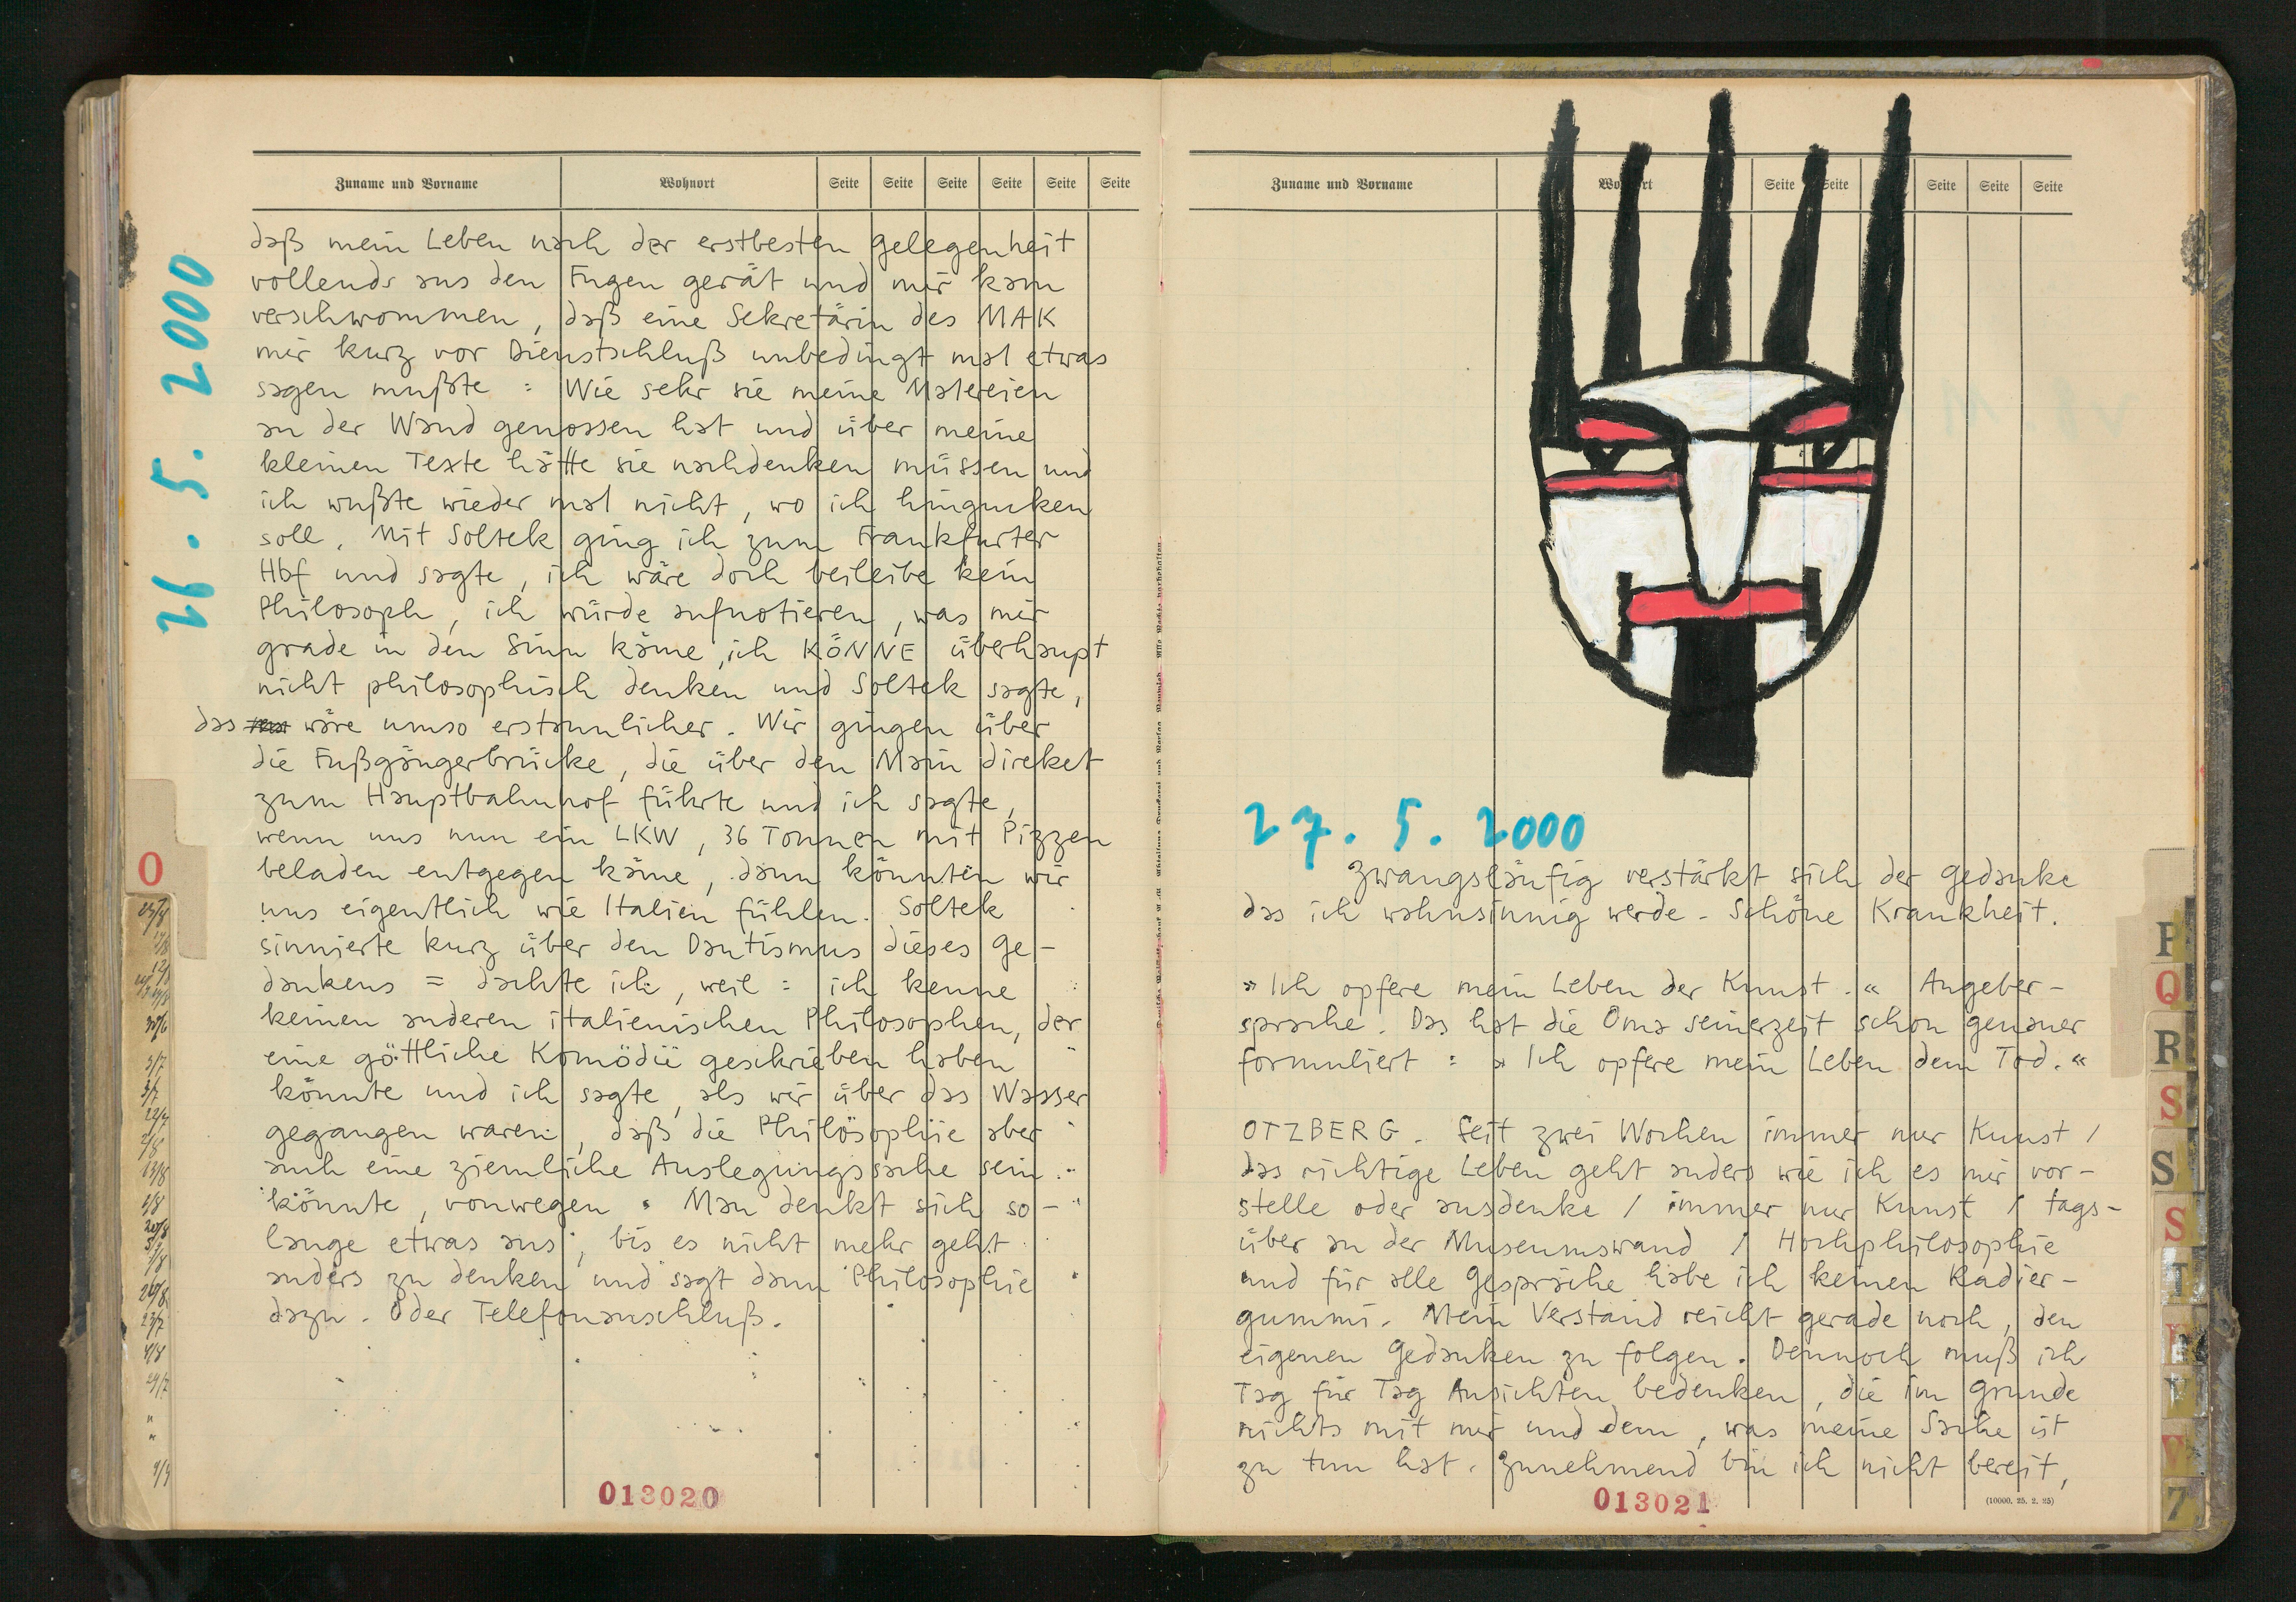 Zuname und Vorname Wohnort Seite Seite Seite Seite Seite Seite
26. 5. 2000
daß mein Leben nach der erstbesten Gelegenheit
vollends aus den Fugen gerät und mir kam
verschwommen, daß eine Sekretärin des MAK
mir kurz vor Dienstschluß unbedingt mal etwas
sagen mußte : Wie sehr sie meine Malereien
an der Wand genossen hat und über meine
kleinen Texte hätte sie nachdenken müssen und
ich wußte wieder mal nicht, wo ich hingucken
soll. Mit Soltek ging ich zum Frankfurter
Hbf und sagte, ich wäre doch beileibe kein
Philosoph, ich würde aufnotieren, was mir
grade in den Sinn käme, ich KÖNNE überhaupt
nicht philosophisch denken und Soltek sagte,
das wäre umso erstaunlicher. Wir gingen über
die Fußgängerbrücke, die über den Main direket
zum Hauptbahnhof führte und ich sagte,
wenn uns nun ein LKW, 36 Tonnen mit Pizzen
beladen entgegen käme, dann könnten wir
uns eigentlich wie Italien fühlen. Soltek
sinnierte kurz über den Dantismus dieses Ge-
dankens = dachte ich, weil : ich kenne
keinen anderen italienischen Philosophen, der
eine göttliche Komödie geschrieben haben
könnte und ich sagte, als wir über das Wasser
gegangen waren, daß die Philosophie aber
auch eine ziemliche Auslegungssache sein
könnte, vonwegen : Man denkt sich so-
lange etwas aus, bis es nicht mehr geht
anders zu denken und sagt dann Philosophie
dazu. Oder Telefonanschluß.
013020
O
Zuname und Vorname Wohnort Seite Seite Seite Seite Seite
27. 5. 2000
Zwangsläufig verstärkt sich der Gedanke
das ich wahnsinnig werde. Schöne Krankheit.
»Ich opfere mein Leben der Kunst.« Angeber-
sprache. Das hat die Oma seinerzeit schon genauer
formuliert : »Ich opfere mein Leben dem Tod.«
OTZBERG. Seit zwei Wochen immer nur Kunst /
das richtige Leben geht anders wie ich es mir vor-
stelle oder ausdenke / immer nur Kunst / tags-
über an der Museumswand / Hochphilosophie
und für alle Gespräche habe ich keinen Radier-
gummi. Mein Verstand reicht gerade noch, den
eigenen Gedanken zu folgen. Dennoch muß ich
Tag für Tag Ansichten bedenken, die im Grunde
nichts mit mir und dem, was meine Sache ist
zu tun hat. Zunehmend bin ich nicht bereit,
013021
(10000. 25. 2. 25)
P
Q
R
S
S
S